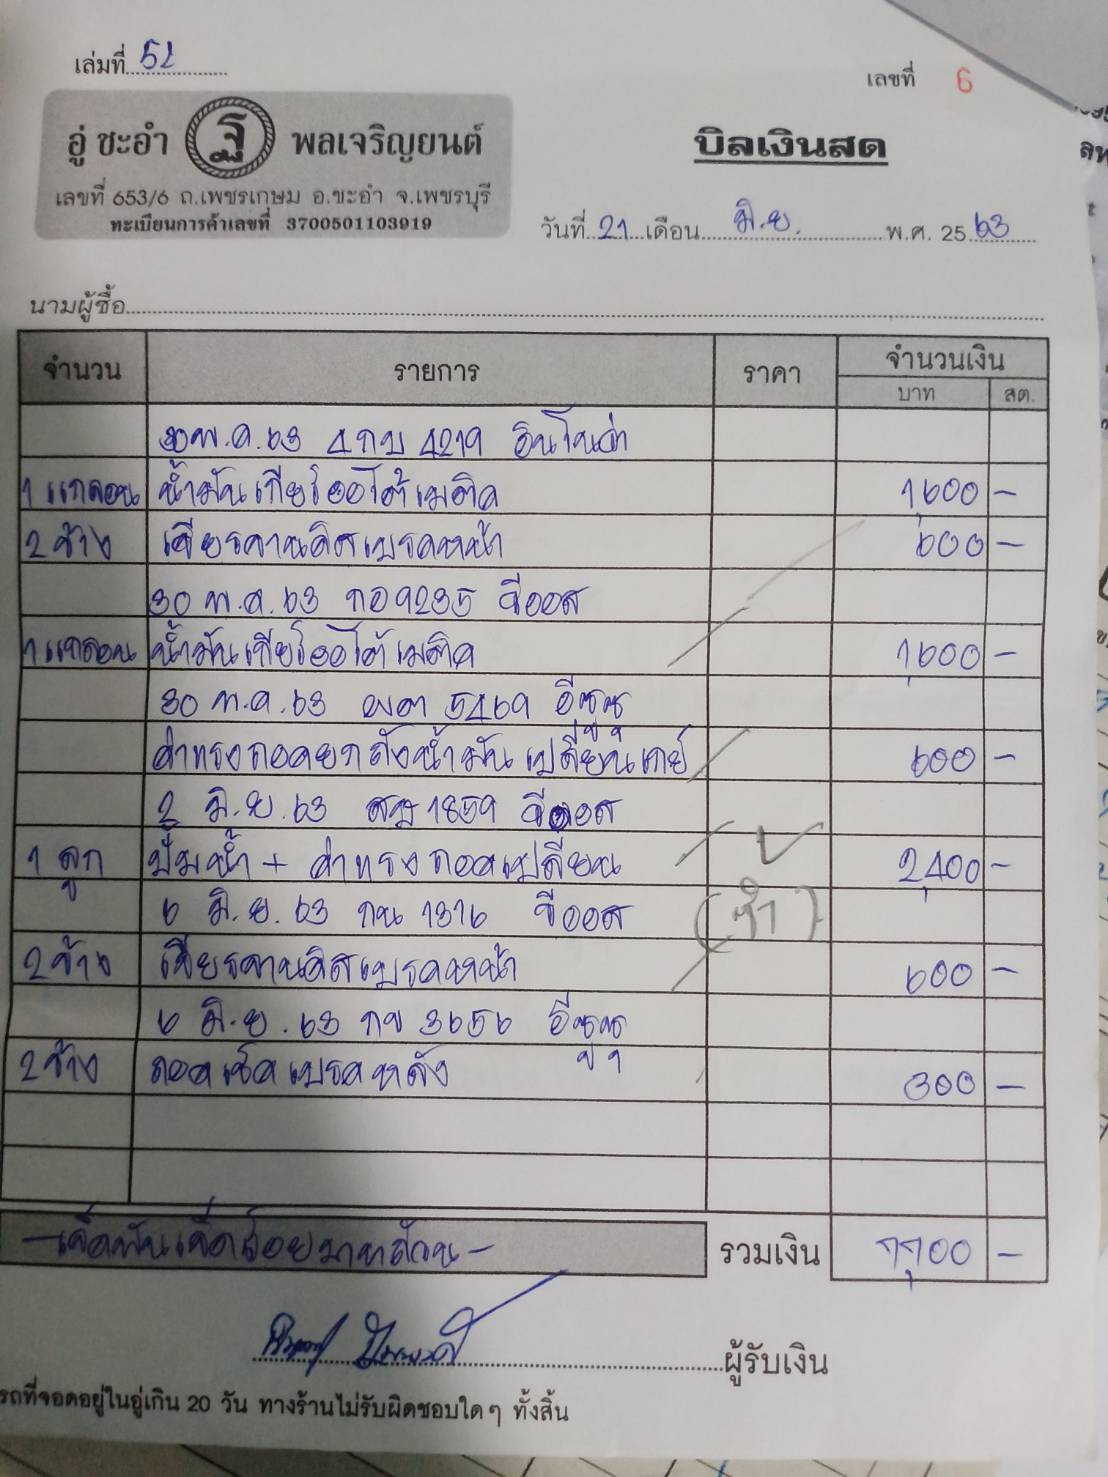 เล่มที่ 52
เลขที่ 6
อู่ ชะอำ ฐ พลเจริญยนต์
เลขที่ 653/6 ถ.เพชรเกษม อ.ชะอำ จ.เพชรบุรี
ทะเบียนการค้าเลขที่ 3700501103919
บิลเงินสด
วันที่ 21 เดือน มิ.ย. พ.ศ. 2563
นามผู้ซื้อ
จำนวน รายการ ราคา จำนวนเงิน
บาท สต.
30 พ.ค. 63 4กบ 4219 อินโนว่า
1 แกลอน น้ำมันเกียร์ออโต้เมติค 1,600 -
2 ข้าง เจียรจานดิสเบรคหน้า 600 -
30 พ.ค. 63 กอ 9235 วีออส
1 แกลอน น้ำมันเกียร์ออโต้เมติค 1,600 -
30 พ.ค. 63 5469 อีซูซุ
ค่าแรงถอดยกถังน้ำมันเปลี่ยนเกย์ 600 -
2 มิ.ย. 63 1859 วีออส
1 ลูก ปั๊มน้ำ + ค่าแรงถอดเปลี่ยน 2,400 -
6 มิ.ย. 63 กน 1316 วีออส (ซ้ำ)
2 ข้าง เจียรจานดิสเบรคหน้า 600 -
6 มิ.ย. 63 กข 3656 อีซูซุ
2 ข้าง ถอดเช็คเบรคหลัง 300 -
- เจ็ดพันเจ็ดร้อยบาทถ้วน - รวมเงิน 7,700 -
ผู้รับเงิน
รถที่จอดอยู่ในอู่เกิน 20 วัน ทางร้านไม่รับผิดชอบใด ๆ ทั้งสิ้น